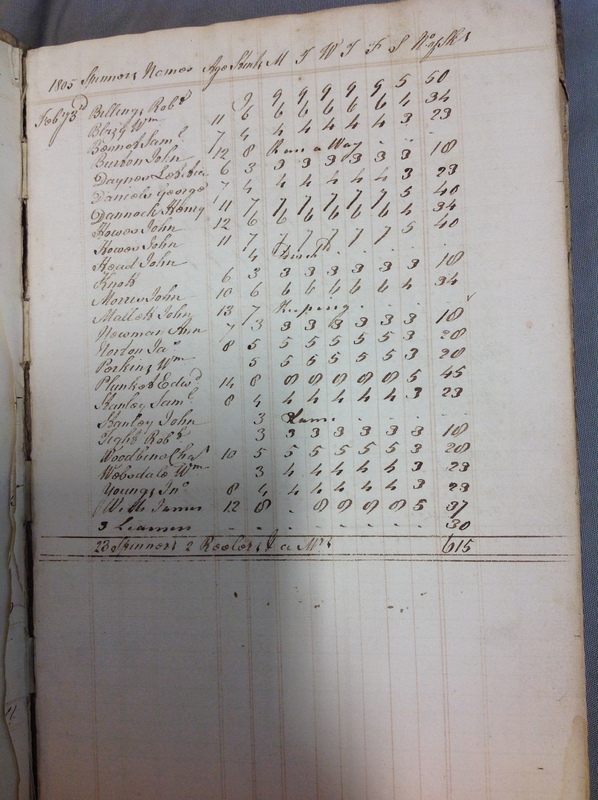 1805 Spinners Names Age Stint M T W T F S No of Sks
Feby 3d Billings Robt 9 9 9 9 9 9 5 50
Blazy Wm 11 6 6 6 6 6 6 4 34
Bennet Saml 7 4 4 4 4 4 4 3 23
Burton John 12 8 Run a Way
Daynes 6 3 3 3 3 3 3 3 18
Daniels George 7 4 4 4 4 4 4 3 23
Dannock Henry 11 7 7 7 7 7 7 5 40
Howes John 12 6 6 6 6 6 6 4 34
Howes John 11 7 7 7 7 7 7 5 40
Head John 4
Knott 6 3 3 3 3 3 3 3 18
Morris John 10 6 6 6 6 6 6 4 34
Mallett John 13 7
Newman Ann 7 3 3 3 3 3 3 3 18
Norton Jas 8 5 5 5 5 5 5 3 28
Perkins Wm 5 5 5 5 5 5 3 28
Plunket Edwd 14 8 8 8 8 8 8 5 45
Stanley Saml 8 4 4 4 4 4 4 3 23
Stanley John 3
Tight Robt 3 3 3 3 3 3 3 18
Woodbine Chas 10 5 5 5 5 5 5 3 28
Webdale Wm 3 4 4 4 4 4 3 23
Youngs Jno 8 4 4 4 4 4 4 3 23
Wells James 12 8 - 8 8 8 8 5 37
3 Learners - - - - - - - - 30
23 Spinners 2 Reelers 615